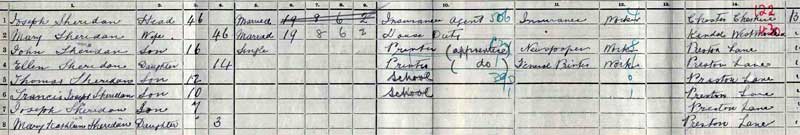 1. 2. 3. 4. 5. 6. 7. 8. 9. 10. 11. 12. 13. 14.
1 Joseph Sheridan Head 46 Married 19 8 6 2 Insurance Agent 506 Insurance Worker Chester Cheshire 122
2 Mary Sheridan Wife 46 Married 19 8 6 2 House Duty Kendal 430
3 John Sheridan Son 16 Single Printer (apprentice) Newspaper Works Preston Lanc
4 Ellen Sheridan Daughter 14 Printer ( do ) General Works Preston Lanc
5 Thomas Sheridan Son 12 School 390 0 Preston Lanc
6 Francis Joseph Sheridan Son 10 School Preston Lanc
7 Joseph Sheridan Son 7 Preston Lanc
8 Mary Kathleen Sheridan Daughter 3 Preston Lanc